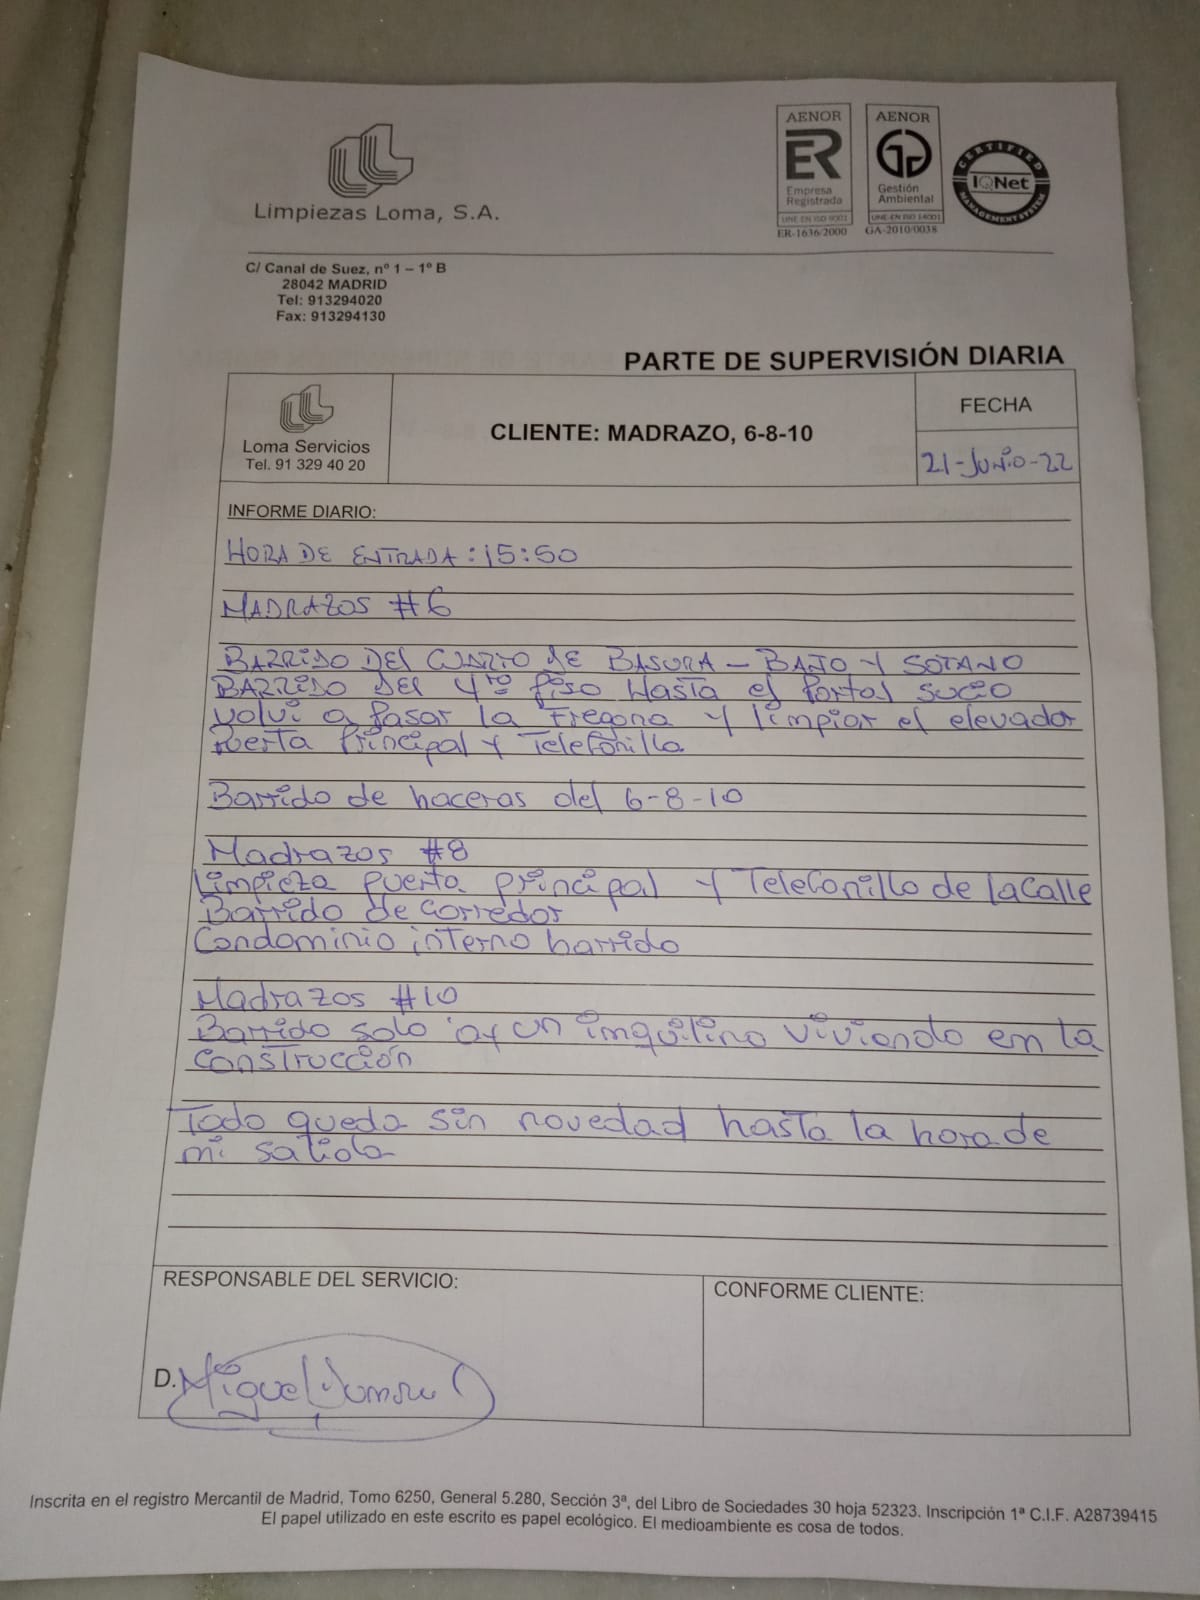 Limpiezas Loma, S.A.
AENOR
ER
Empresa
Registrada
UNE-EN ISO 9001
ER-1636/2000
AENOR
Gestión
Ambiental
UNE-EN ISO 14001
GA-2010/0038
CERTIFIED
IQNet
MANAGEMENT SYSTEM
C/ Canal de Suez, nº 1 – 1º B
28042 MADRID
Tel: 913294020
Fax: 913294130
PARTE DE SUPERVISIÓN DIARIA
Loma Servicios
Tel. 91 329 40 20
CLIENTE: MADRAZO, 6-8-10
FECHA
21-JUNIO-22
INFORME DIARIO:
HORA DE ENTRADA: 15:50
MADRAZOS #6
BARRIDO DEL CUARTO DE BASURA - BAÑO Y SOTANO
BARRIDO DEL 4to Piso Hasta el Portal sucio
volvi a pasar la Fregona y limpiar el elevador
Puerta Principal y Telefonillo
Barrido de haceras del 6-8-10
Madrazos #8
Limpieza puerta principal y Telefonillo de la Calle
Barrido de corredor
Condominio interno barrido
Madrazos #10
Barrido solo ay un inquilino viviendo en la
construcción
Todo queda sin novedad hasta la hora de
mi salida
RESPONSABLE DEL SERVICIO:
CONFORME CLIENTE:
D. Miguel
Inscrita en el registro Mercantil de Madrid, Tomo 6250, General 5.280, Sección 3ª, del Libro de Sociedades 30 hoja 52323. Inscripción 1ª C.I.F. A28739415
El papel utilizado en este escrito es papel ecológico. El medioambiente es cosa de todos.